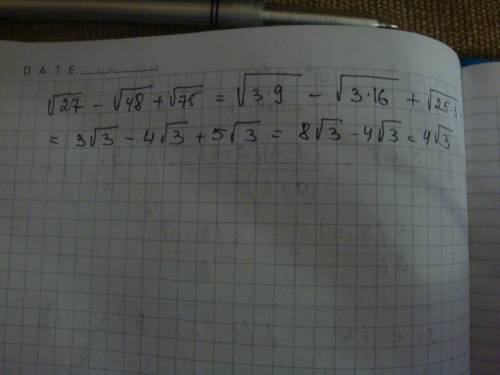 DATE:
√27 - √48 + √75 = √3·9 - √3·16 + √25·3
= 3√3 - 4√3 + 5√3 = 8√3 - 4√3 = 4√3